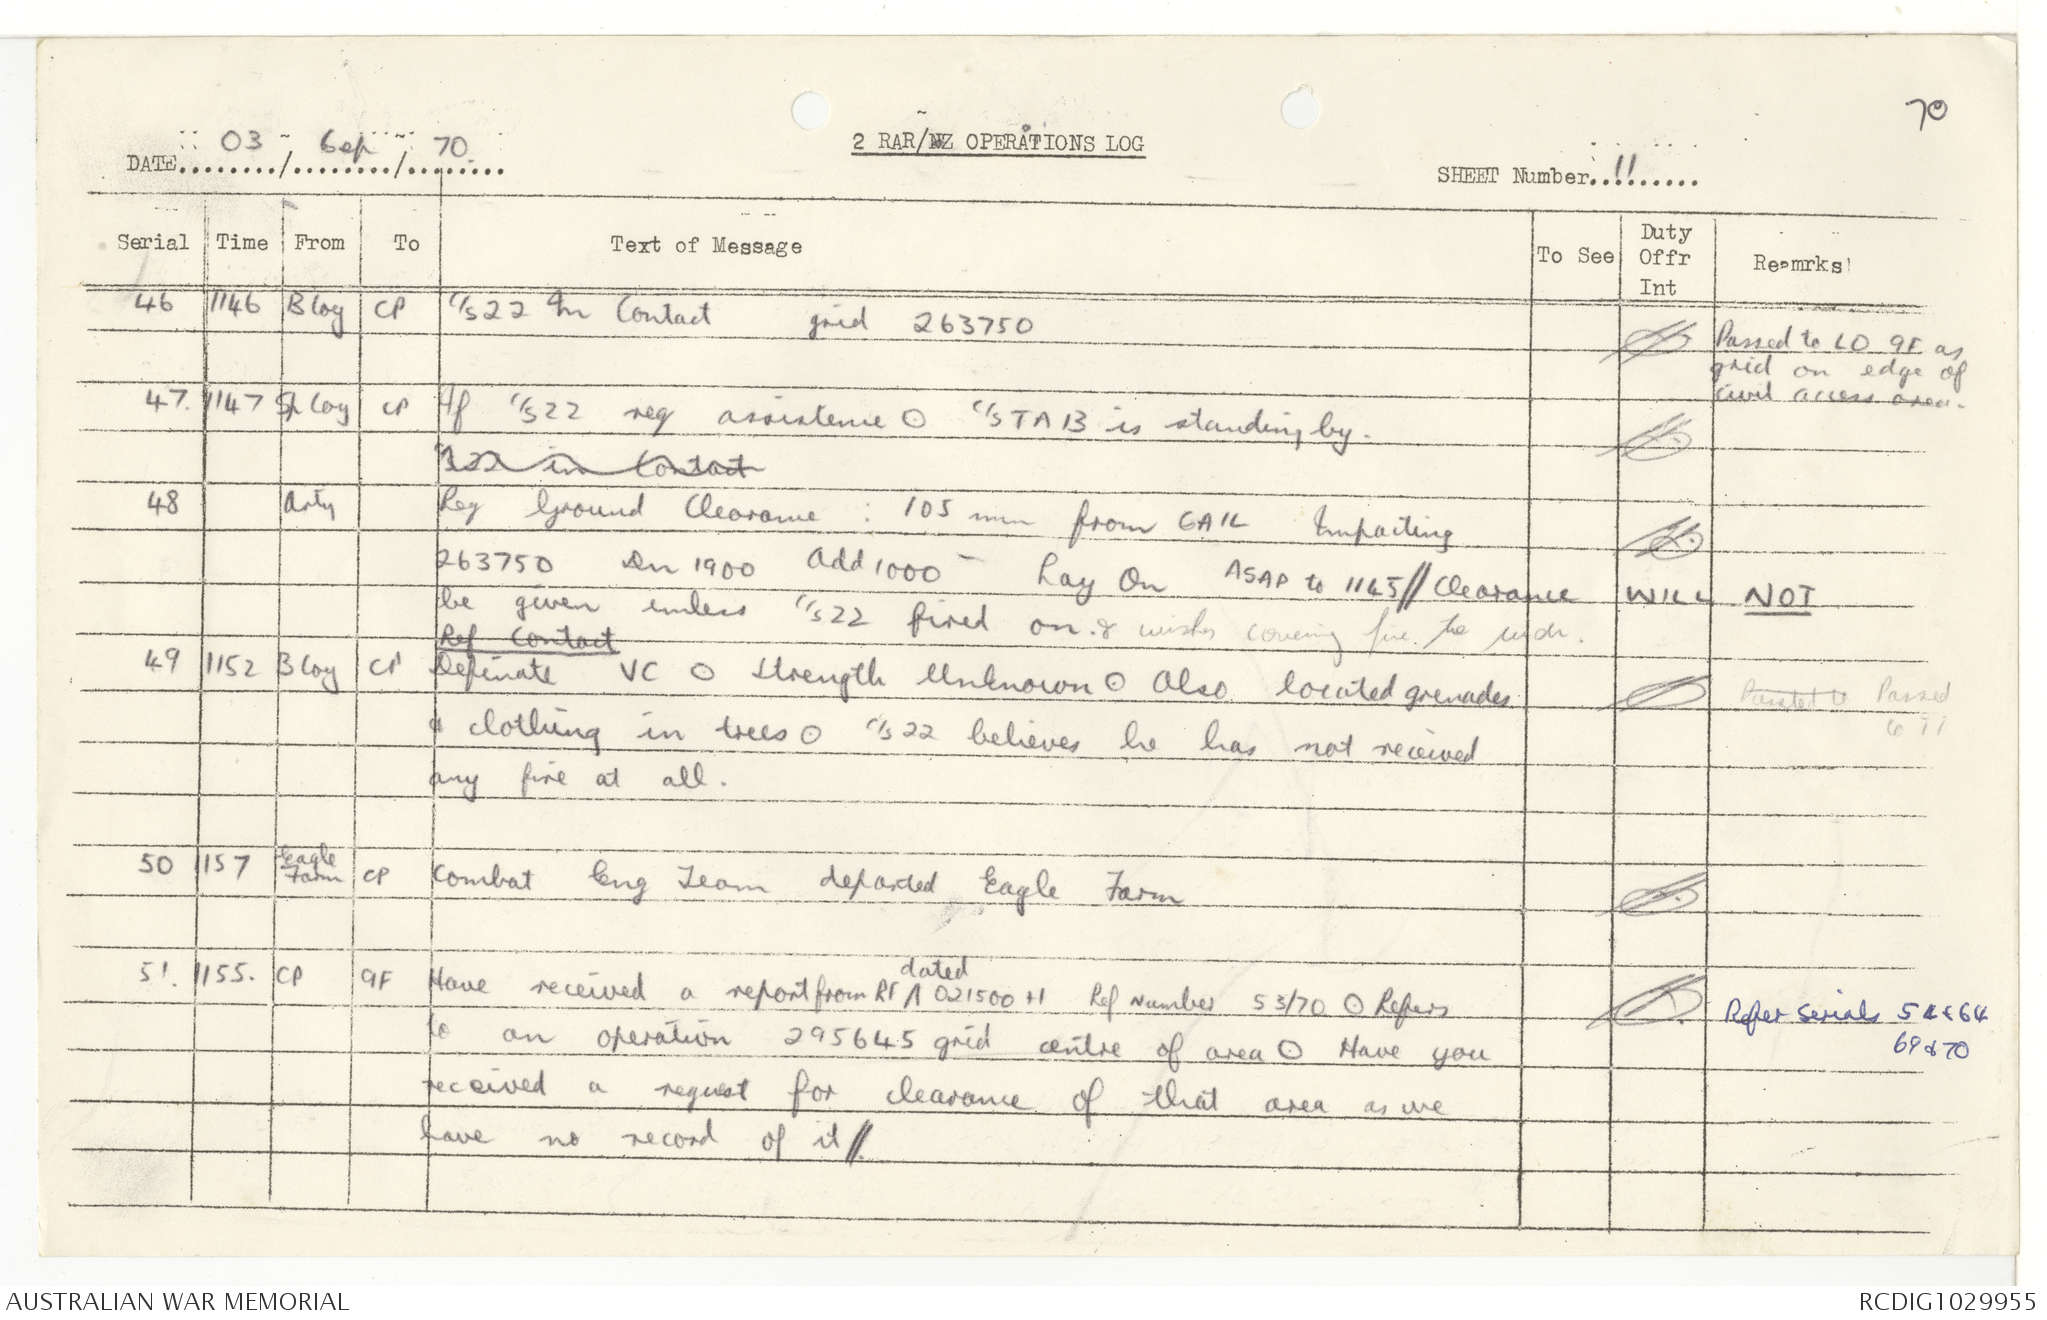 70
DATE 03 / Sep / 70
2 RAR/NZ OPERATIONS LOG
SHEET Number 11
Serial Time From To Text of Message To See Duty Offr Int Remrks
46 1146 B Coy CP C/S 22 In Contact grid 263750
Passed to LO 9F as
grid on edge of
civil access area.
47. 1147 Sp Coy CP If C/S 22 req assistence ⊙ C/S TA13 is standing by.
C/S 22 in Contact
48 Arty Req Ground Clearance : 105 mm from GAIL Impacting
263750 Dn 1900 Add 1000 Lay On ASAP to 1145 // Clearance WILL NOT
be given unless C/S 22 fired on & wishes covering fire.
Ref Contact
49 1152 B Coy CP Definate VC ⊙ Strength Unknown ⊙ Also located grenades
& clothing in trees ⊙ C/S 22 believes he has not received
any fire at all.
Passed
to
50 1157 Eagle Farm CP Combat Eng Team departed Eagle Farm
51. 1155. CP 9F Have received a report from RF dated 021500 H Ref Number 53/70 ⊙ Refers
to an operation 295645 grid centre of area ⊙ Have you
received a request for clearance of that area as we
have no record of it //.
Refer Serials 54 & 64
69 & 70
AUSTRALIAN WAR MEMORIAL
RCDIG1029955